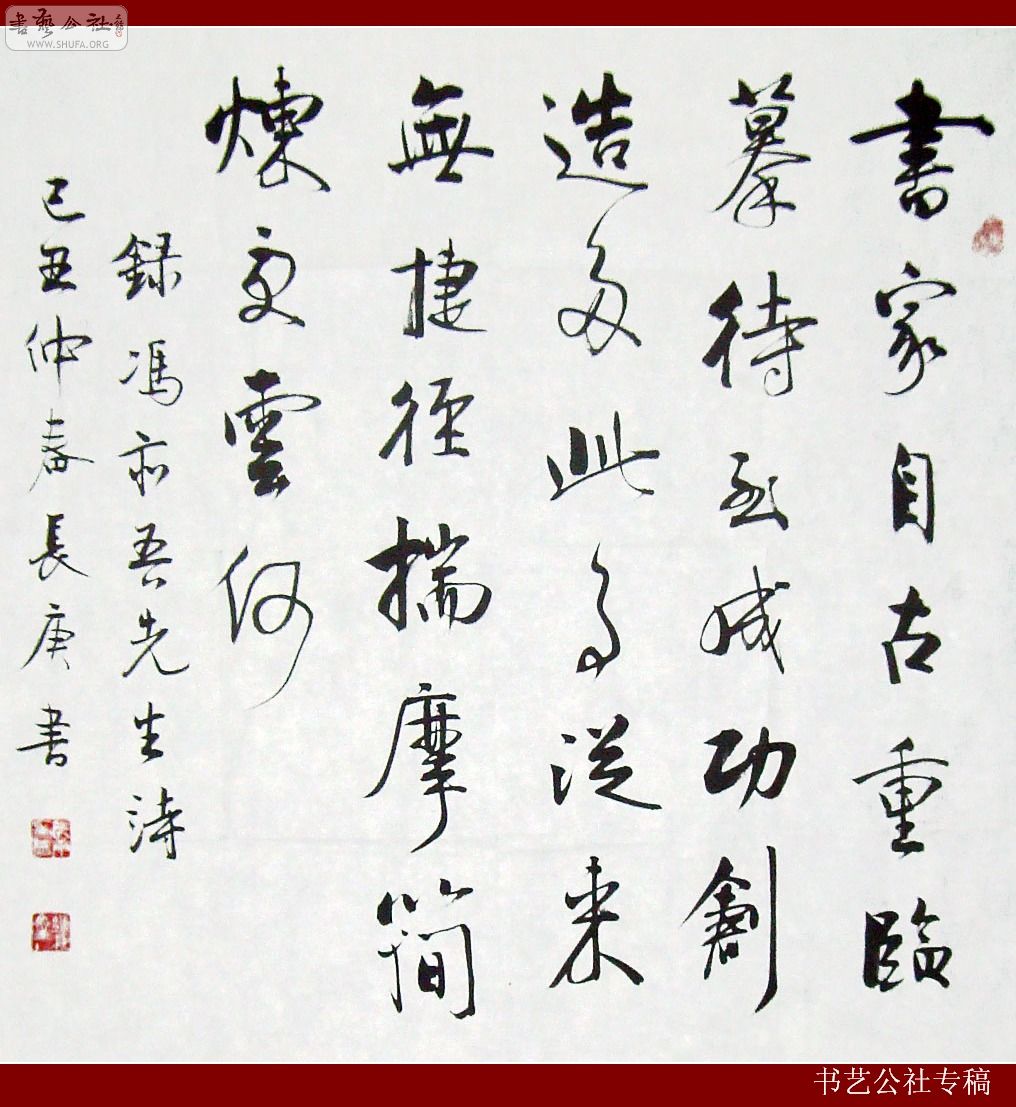 書艺公社
WWW.SHUFA.ORG
書家自古重臨
摹待至成功創
造多此事從来
無捷徑揣摩簡
煉更雲何
録馮亦吾先生詩
己丑仲春長庚書
书艺公社专稿